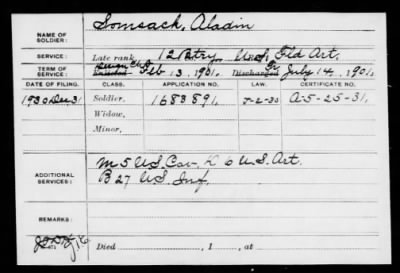 NAME OF SOLDIER: Somsack, Aladin
SERVICE: Late rank, 12 Btry, U.S. Fld Art.
TERM OF SERVICE: Enlisted Feb 13, 1901, Discharged July 14, 1901
DATE OF FILING. CLASS. APPLICATION NO. LAW. CERTIFICATE NO.
1930 Dec 31 Soldier, 1683891, A-5-25-31,
Widow,
Minor,
ADDITIONAL SERVICES: M 5 U.S. Cav. 6 U.S. Art.
B 27 U.S. Inf.
REMARKS:
Died , 1 , at